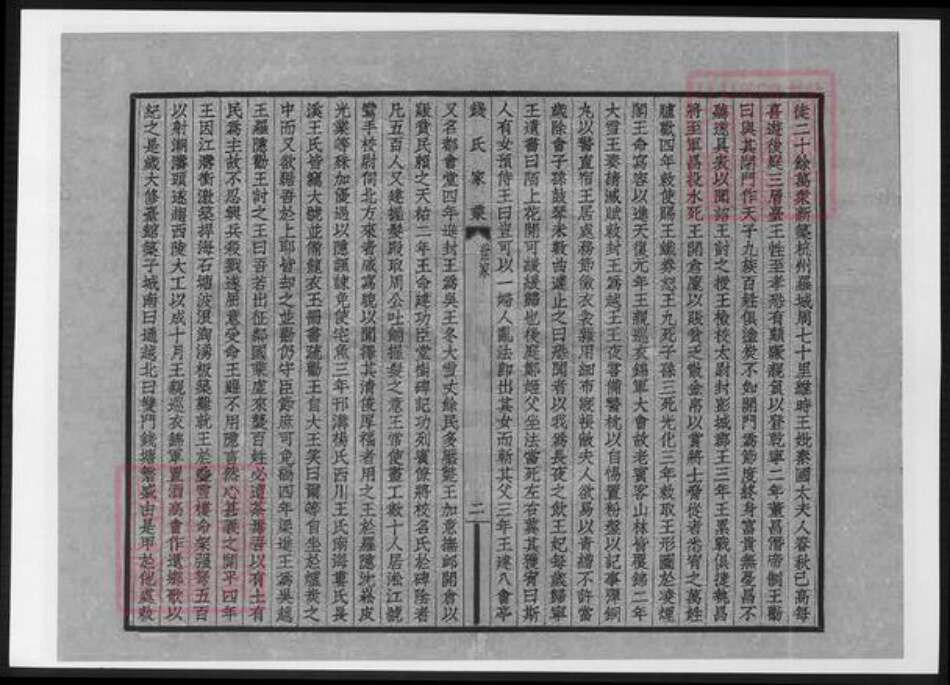 徒二十餘萬衆新築杭州羅城周七十里維時王妣秦國太夫人春秋已高每
喜遊後庭三層臺王性至孝恐有顛躓親負以登乾寧二年董昌僭帝制王勸
曰與其閉門作天子九族百姓俱塗炭不如開門為節度終身富貴無憂昌不
聽遂具表以聞詔王討之授王檢校太尉封彭城郡王三年王累戰俱捷執昌
將至軍昌投水死王開倉廩以賑貧乏散金帛以賞將士脅從者悉宥之萬姓
臚歡四年敕使賜王鐵券恕王九死子孫三死光化三年敕取王形圖於凌煙
閣王命寫容以進天復元年王親巡衣錦軍大會故老賓客山林皆覆錦二年
大雪王奏請減賦敕封王為越王王夜嘗備警枕以自惕置粉盤以記事彈銅
丸以警直宿王居處務節儉衣衾雜用細布寢帳敝夫人欲易以青繒不許當
歲除會子孫鼓琴未數曲遽止之曰恐聞者以我為長夜之飲王妃每歲歸寧
王遺書曰陌上花開可緩緩歸也後庭鄭姬父坐法當死左右冀其獲宥曰斯
人有女預侍王曰豈可以一婦人亂法即出其女而斬其父三年王建八會亭
錢氏家乘
世家
二
又名都會堂四年進封王為吳王冬大雪丈餘民多艱王加意撫卹開倉以
賑貧民賴之天祐二年王命建功臣堂樹碑記功列賓僚將校名氏於碑陰者
凡五百人又建握髮殿取周公吐餔握髮之意王常使畫工數十人居淞江號
鸞手校尉伺北方來者咸寫貌以聞擇其清俊厚福者用之王於羅隱沈崧皮
光業等殊加優遇以隱諷諫免使宅魚三年邗溝楊氏西川王氏南海劉氏長
溪王氏皆竊大號並備龍衣玉冊書疏勸王自大王笑曰爾等自坐於爐炭之
中而又欲踞吾於上耶皆却之並勸仍守臣節庶可免禍四年梁進王為吳越
王羅隱勸王討之王曰吾若出征鄰國乘虛來襲百姓必遭荼毒吾以有土有
民為主故不忍興兵殺戮遂屈意受命王雖不用隱言然心甚義之開平四年
王因江濤衝激築捍海石塘波浪洶湧板築難就王於疊雪樓命架强弩五百
以射潮濤頭遂趨西陵大工以成十月王親巡衣錦軍置酒高會作還鄉歌以
紀之是歲大修臺館築子城南曰通越北曰雙門錢塘繁盛由是甲於他處敕